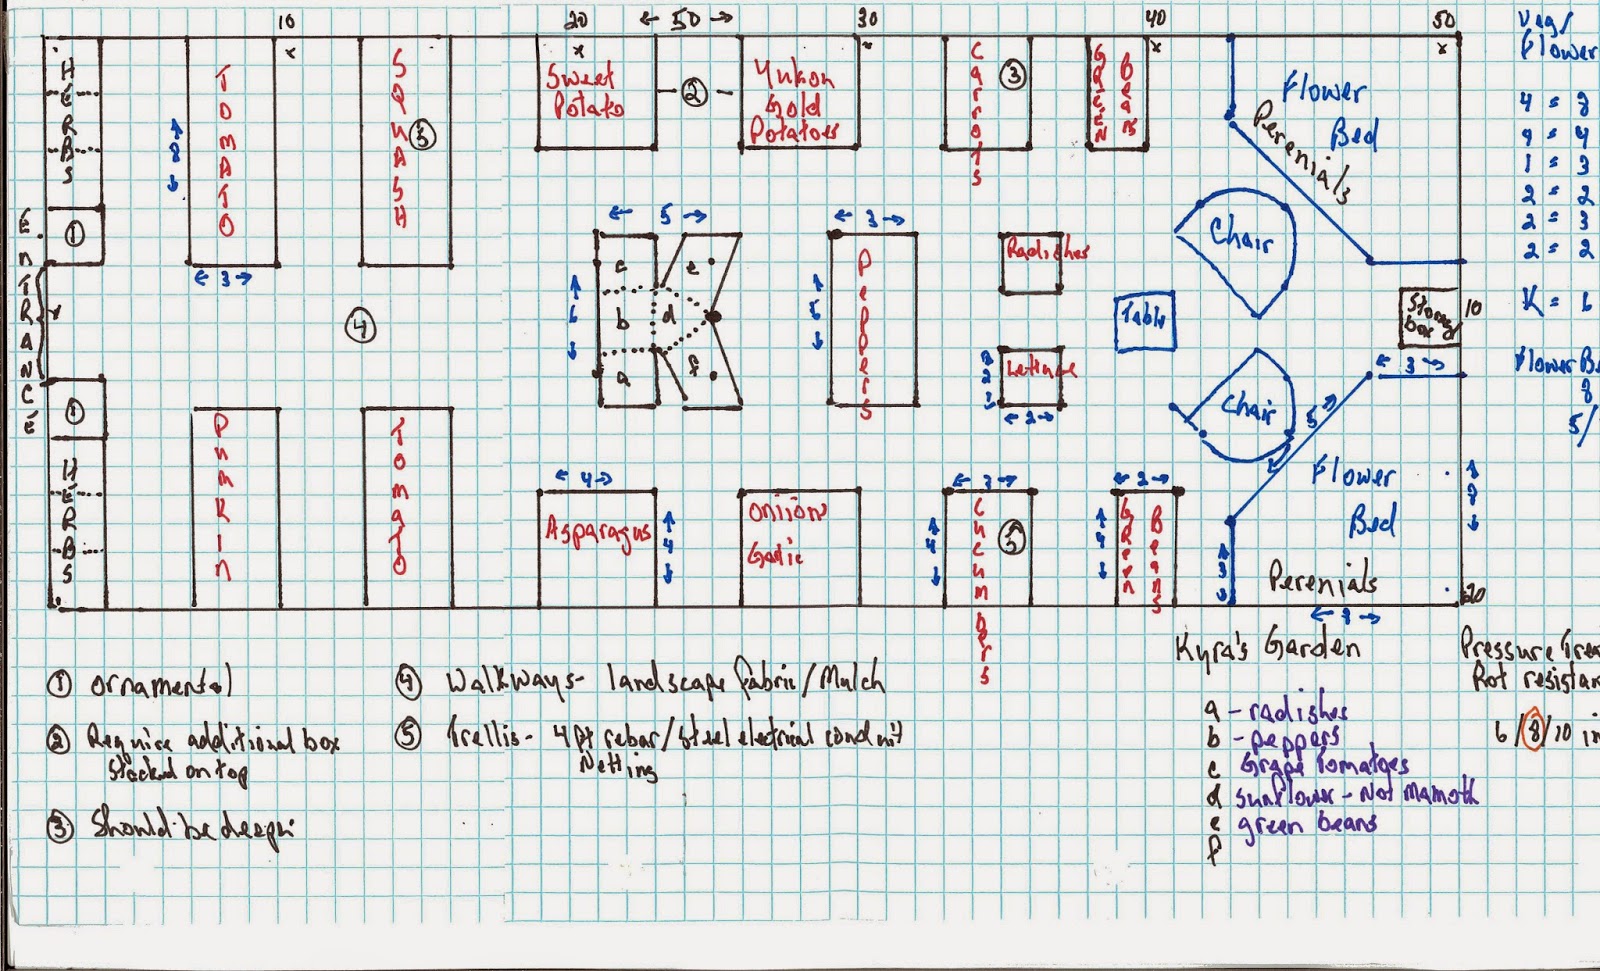 10
20
← 50 →
30
40
50
Veg/
Flower
4 = 8
9 = 4
1 = 3
2 = 2
2 = 3
2 = 2
K = 6
HERBS
TOMATO
SQUASH
5
Sweet
Potato
2
Yukon
Gold
Potatoes
Carrots
3
GREEN
Beans
Flower
Bed
Perenials
8
3
1
ENTRANCE
4
5
6
c
b
a
d
e
f
3
6
Peppers
Radishes
Lettuce
2
2
Chair
Table
Chair
Storage
box
10
3
5
Flower Be
8
5/
1
HERBS
PUMKIN
TOMATO
4
Asparagus
4
Onion
Garlic
3
4
Cucumbers
5
2
4
Green
Beans
Flower
Bed
Perenials
3
8
8
20
1 ornamental
2 Require additional box
Stacked on top
3 Should be deeper
4 Walkways- landscape fabric/Mulch
5 Trellis- 4 pt rebar/Steel electrical conduit
Netting
Kyra's Garden
a - radishes
b - peppers
c Grape Tomatoes
d sunflower - Not Mamoth
e green beans
f
Pressure Trea
Rot resistan
6/8/10 in